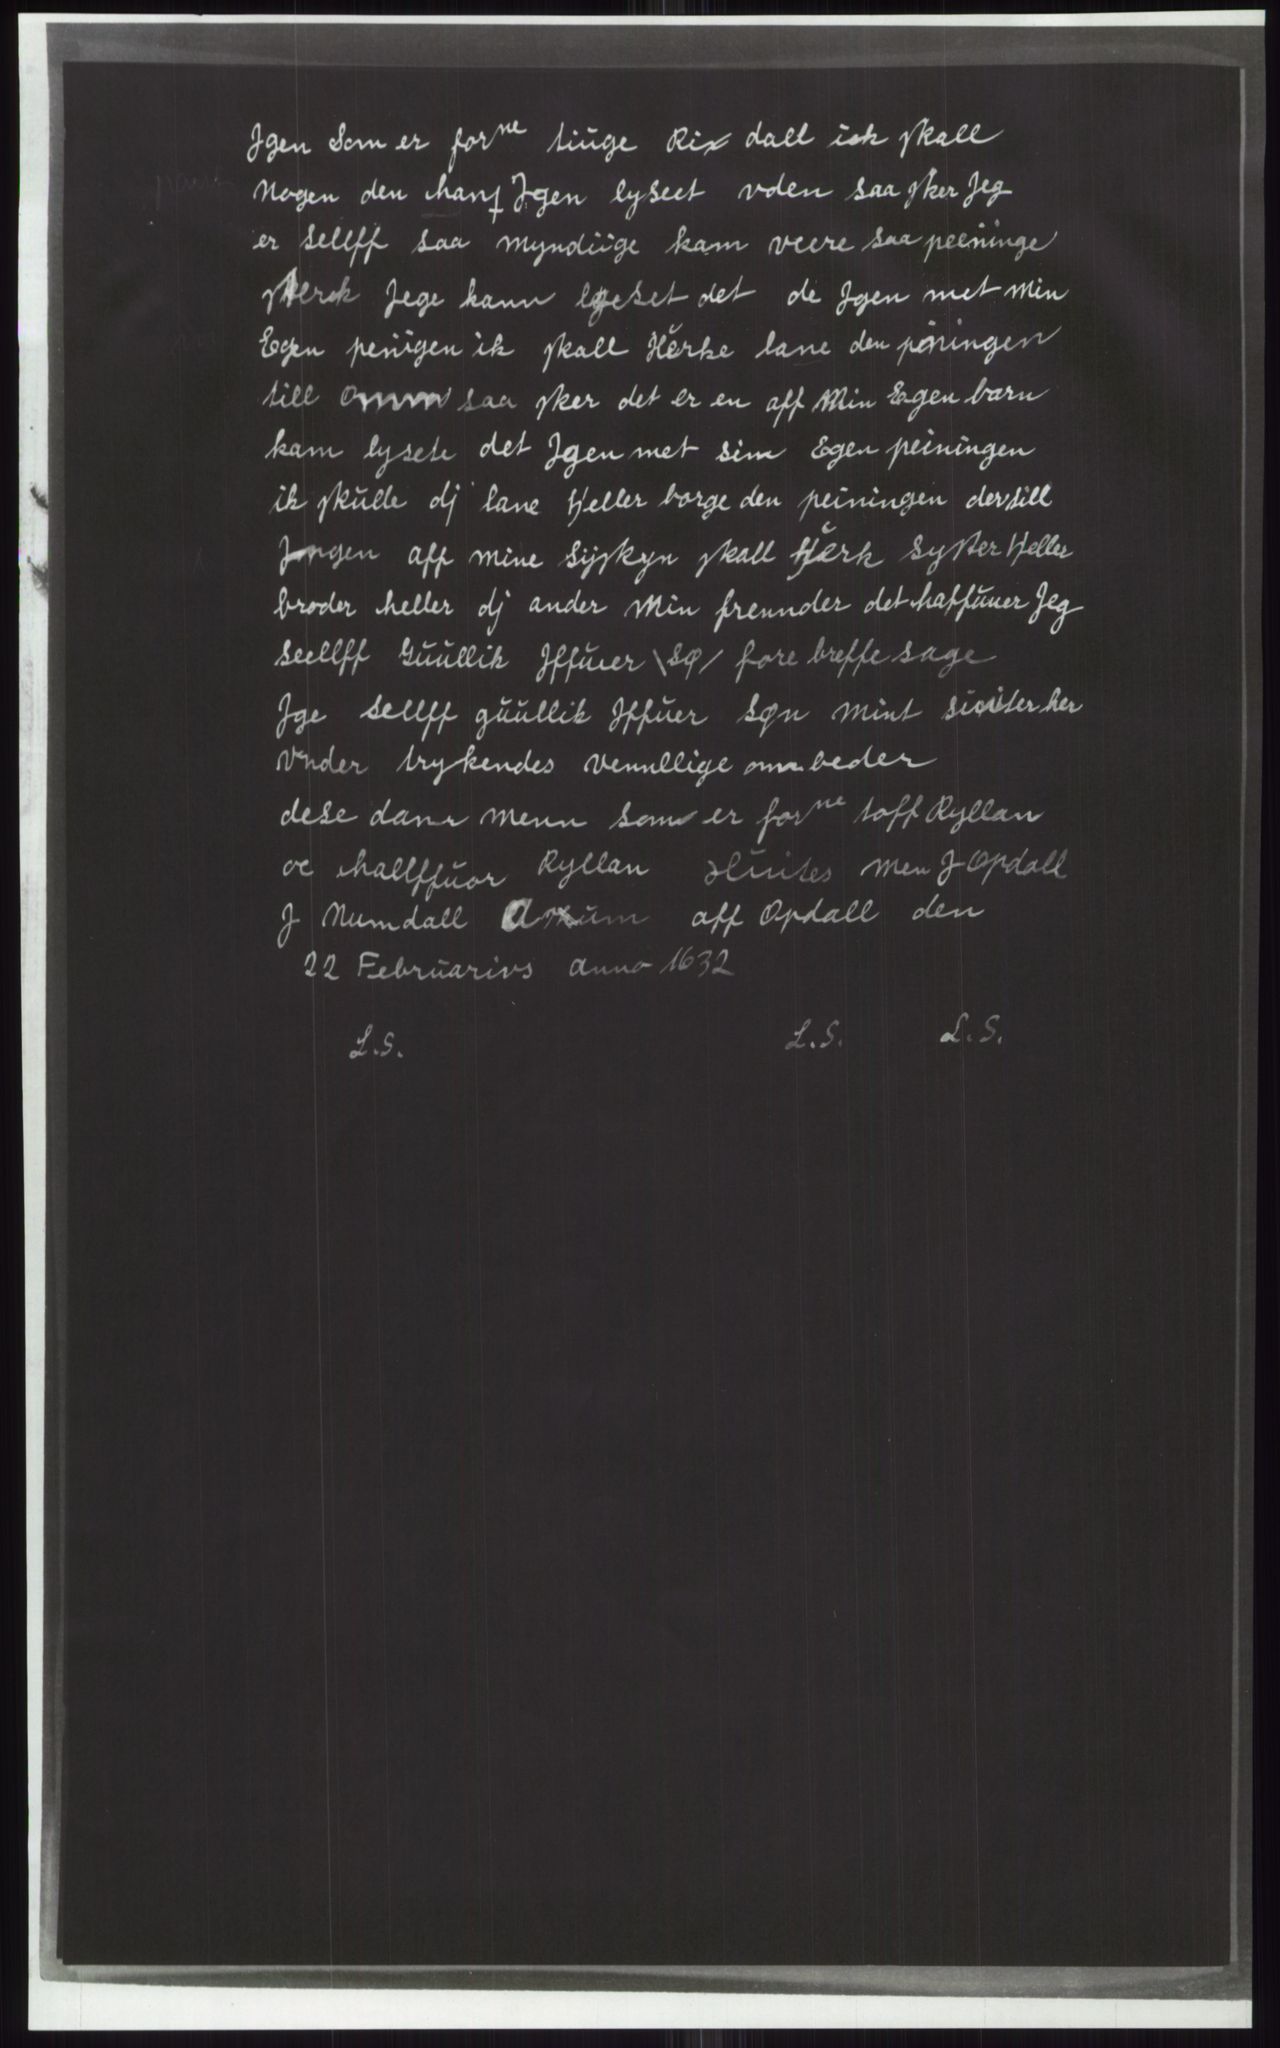 Jgen Som er forne tiuge Rix dall ick skall
Nogen den Jgen lyseet vden saa sker Jeg
er Sellff saa myndiige kam veere saa peeninge
sterck Jege kann lyeset det de Jgen met Min
Egen peniigen ik skall Herke lane den peiningen
till saa sker det er en aff Min Egen barn
kam lysete det Jgen met sine Egen peiningen
ik skulle dj lane Heller borge den peiningen dertill
Jngen aff mine Syskyn skall Herk Syster Heller
broder heller dj ander Min frennder det haffuuer Jeg
Seellff Guullik Jffuer \Sø/ fore breffe sage
Jge Sellff guullik Jffuer Søn mint her
vnder trykendes vennllige om beder
dese dane menn som er forne toff Ryllan
oc Hallffuor Ryllan Men J Opdall
J Numdall aff Opdall den
22 Februarivs anno 1632
L.S. L.S. L.S.